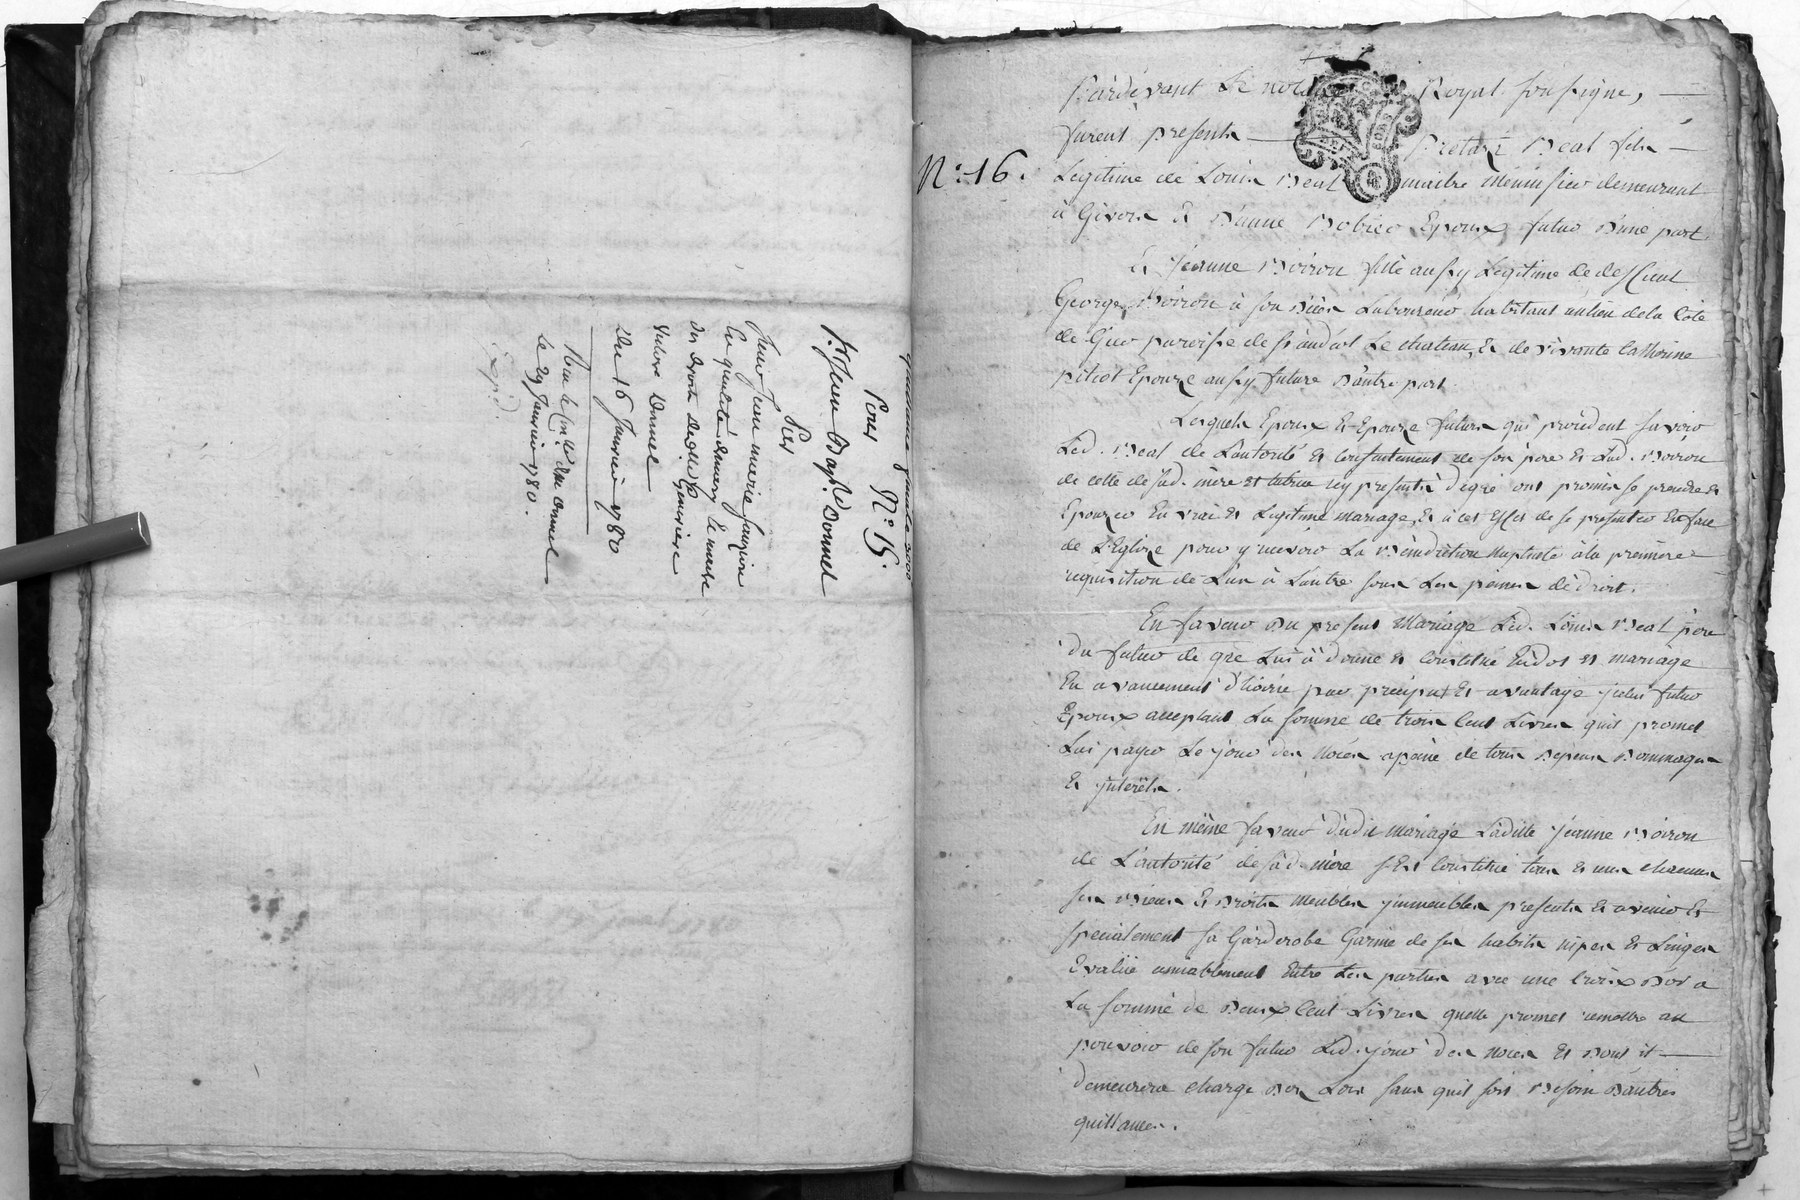 Quittance finale 3000
Pour N.° 15
Sr. Jean Bapt. Bonnet
Par
Jean marie
en qualité
des droits de
Du 16 Janvier 1780
le 29 Janvier 1780.
N.° 16.
Pardevant Le notaire Royal soussigné,
furent presents Beal fils
Legitime de Louis Beal maitre menuisier demeurant
à Givors Et D'anne Epoux futur D'une part.
Et Jeanne Boiron fille aussy Legitime de deffunt
George Boiron à son vivant Laboureur habitant au lieu de la Côte
de Giers paroisse de st andéol Le chateau, Et de vivante Catherine
pitiot Epouze aussy future D'autre part.
Lesquels Epoux Et Epouze futurs qui procedent savoir
Led. Beal de L'autorité Et Consentement de son pere Et Lad. Boiron
de celle de sad. mère et icy presents De gré ont promis se prendre Et
Epouzer En vrai Et Legitime mariage, Et à cet Effet de se presenter En face
de L'Eglize pour y recevoir La Bénédiction nuptiale à la première
requisition de L'un à L'autre sous Les peines de droit.
En faveur Du present Mariage Led. Louis Beal père
du futur de gré Lui à donné Et Constitué En dot Et mariage
En avancement d'hoirie par préciput Et avantage futur
Epoux acceptant La somme de trois Cent Livres quil promet
Lui payer Le jour des Noces apeine de tous Depens Dommages
Et jnterêts.
En même faveur dudit Mariage Laditte Jeanne Boiron
de L'autorité de sad. mère s'Est Constitué tous Et uns chacuns
ses Biens Et Droits Meubles jmmeubles presents Et avenir Et
specialement sa Garderobe Garnie de ses habits nipes Et Linges
Evalüé amiablement Entre Les parties avec une Croix D'or a
La somme de Deux Cent Livres quelle promet remettre au
pouvoir de son futur Led. jour des noces Et Dont il
demeurera chargé Des Lors sans quil soit Besoin D'autres
quittances.